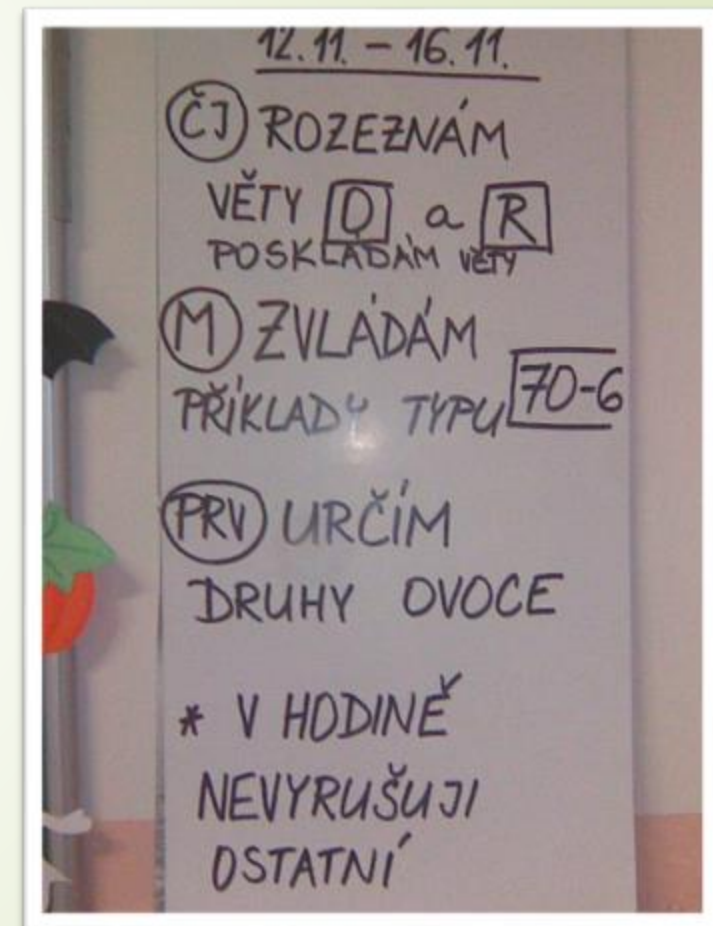 12.11. – 16.11.
ČJ ROZEZNÁM
VĚTY O a R
POSKLÁDÁM VĚTY
M ZVLÁDÁM
PŘÍKLADY TYPU 70-6
PRV URČÍM
DRUHY OVOCE
* V HODINĚ
NEVYRUŠUJI
OSTATNÍ